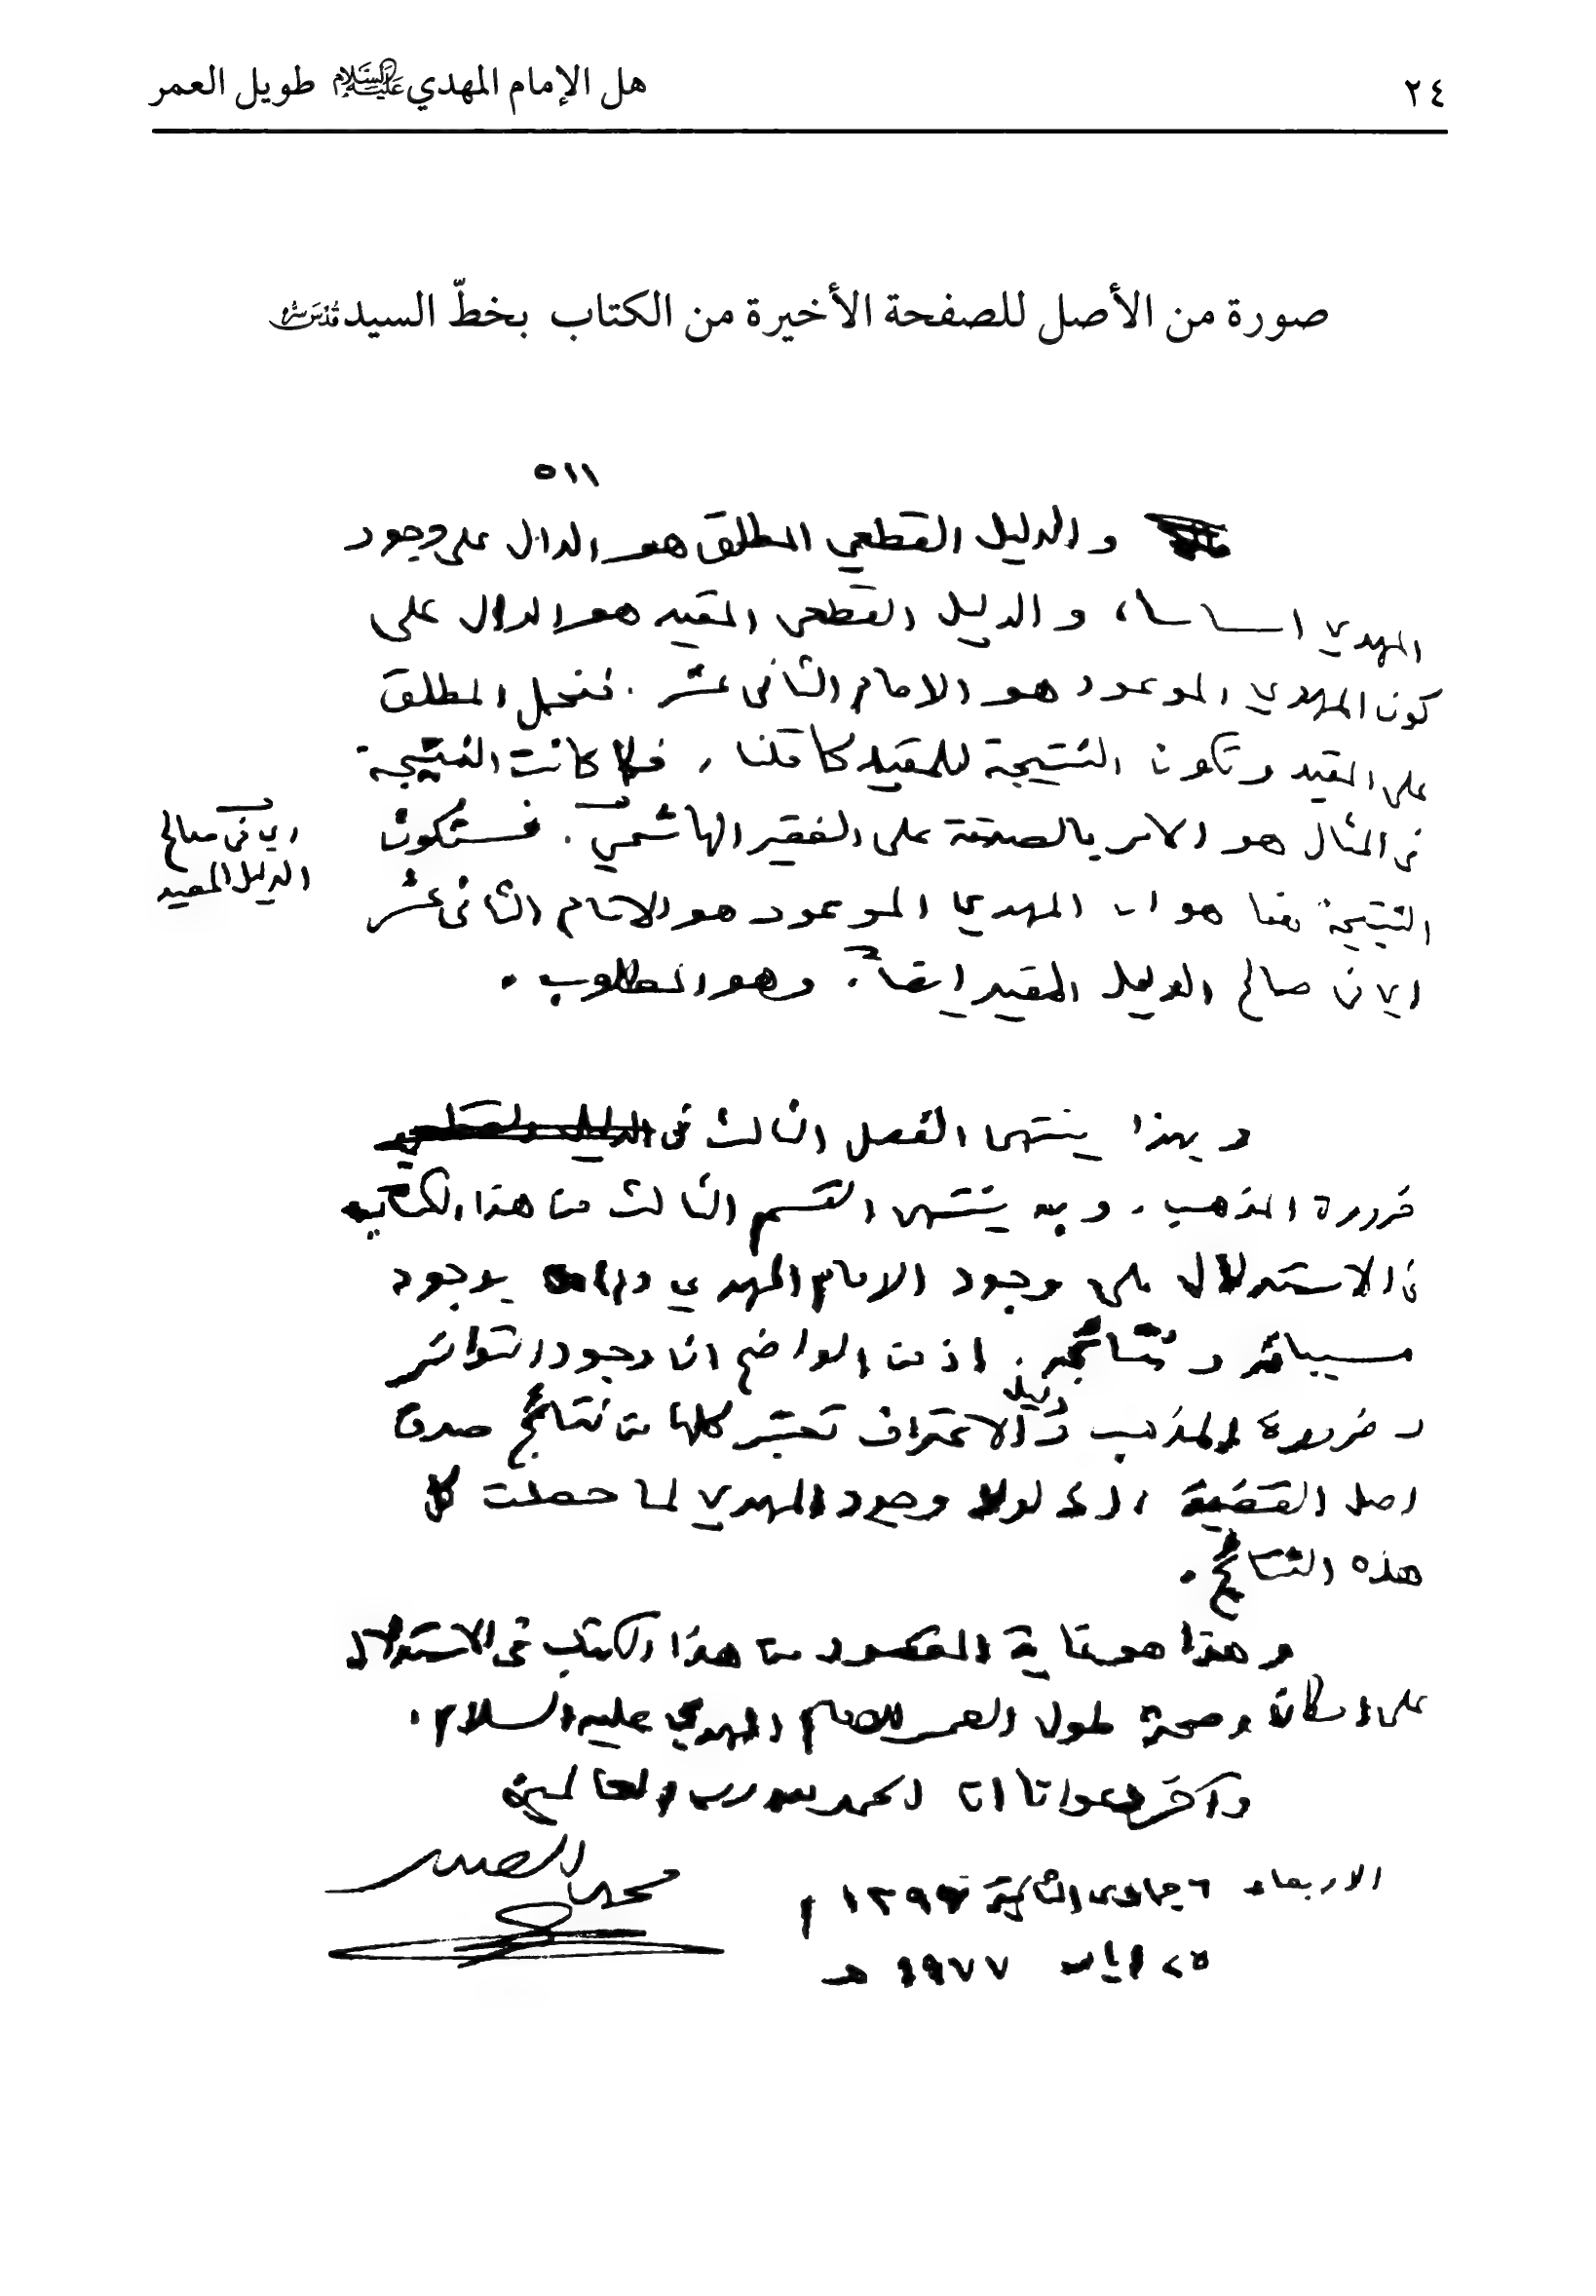 ٢٤
هل الإمام المهدي عليه السلام طويل العمر
صورة من الأصل للصفحة الأخيرة من الكتاب بخطّ السيد قدس سره
٥١١
والدليل القطعي المطلق هو الدال على وجود
المهدي اساسا، والدليل القطعي المقيد هو الدال على
كون المهدي الموعود هو الامام الثاني عشر. فنحمل المطلق
على المقيد وتكون النتيجة للمقيد كما قلنا، فلما كانت النتيجة
في المثال هو الامر بالصدقة على الفقير الهاشمي. فستكون
اي في صالح
الدليل المقيد
النتيجة هنا هو ان المهدي الموعود هو الامام الثاني عشر
اي في صالح الدليل المقيد ايضاً. وهو المطلوب.
وبهذا ينتهي الفصل الثالث في الدليل القطعي
ضرورة المذهب. وبه ينتهي القسم الثالث من هذا الكتاب
في الاستدلال على وجود الامام المهدي بوجود
مسبباته ونتائجه. اذ من الواضح ان وجود التواتر
وضرورة المذهب ودليل الاعتراف تعتبر كلها من نتائج صدق
اصل القضية، اذ لولا وجود المهدي لما حصلت كل
هذه النتائج.
وهذا هو غاية المقصود من هذا الكتاب في الاستدلال
على امكان وصحة طول العمر للامام المهدي عليه السلام.
وآخر دعوانا ان الحمد لله رب العالمين
محمد الصدر
الاربعاء ٦ جمادى الثانية ١٣٩٧ م
٢٥ ايار ١٩٧٧ هـ